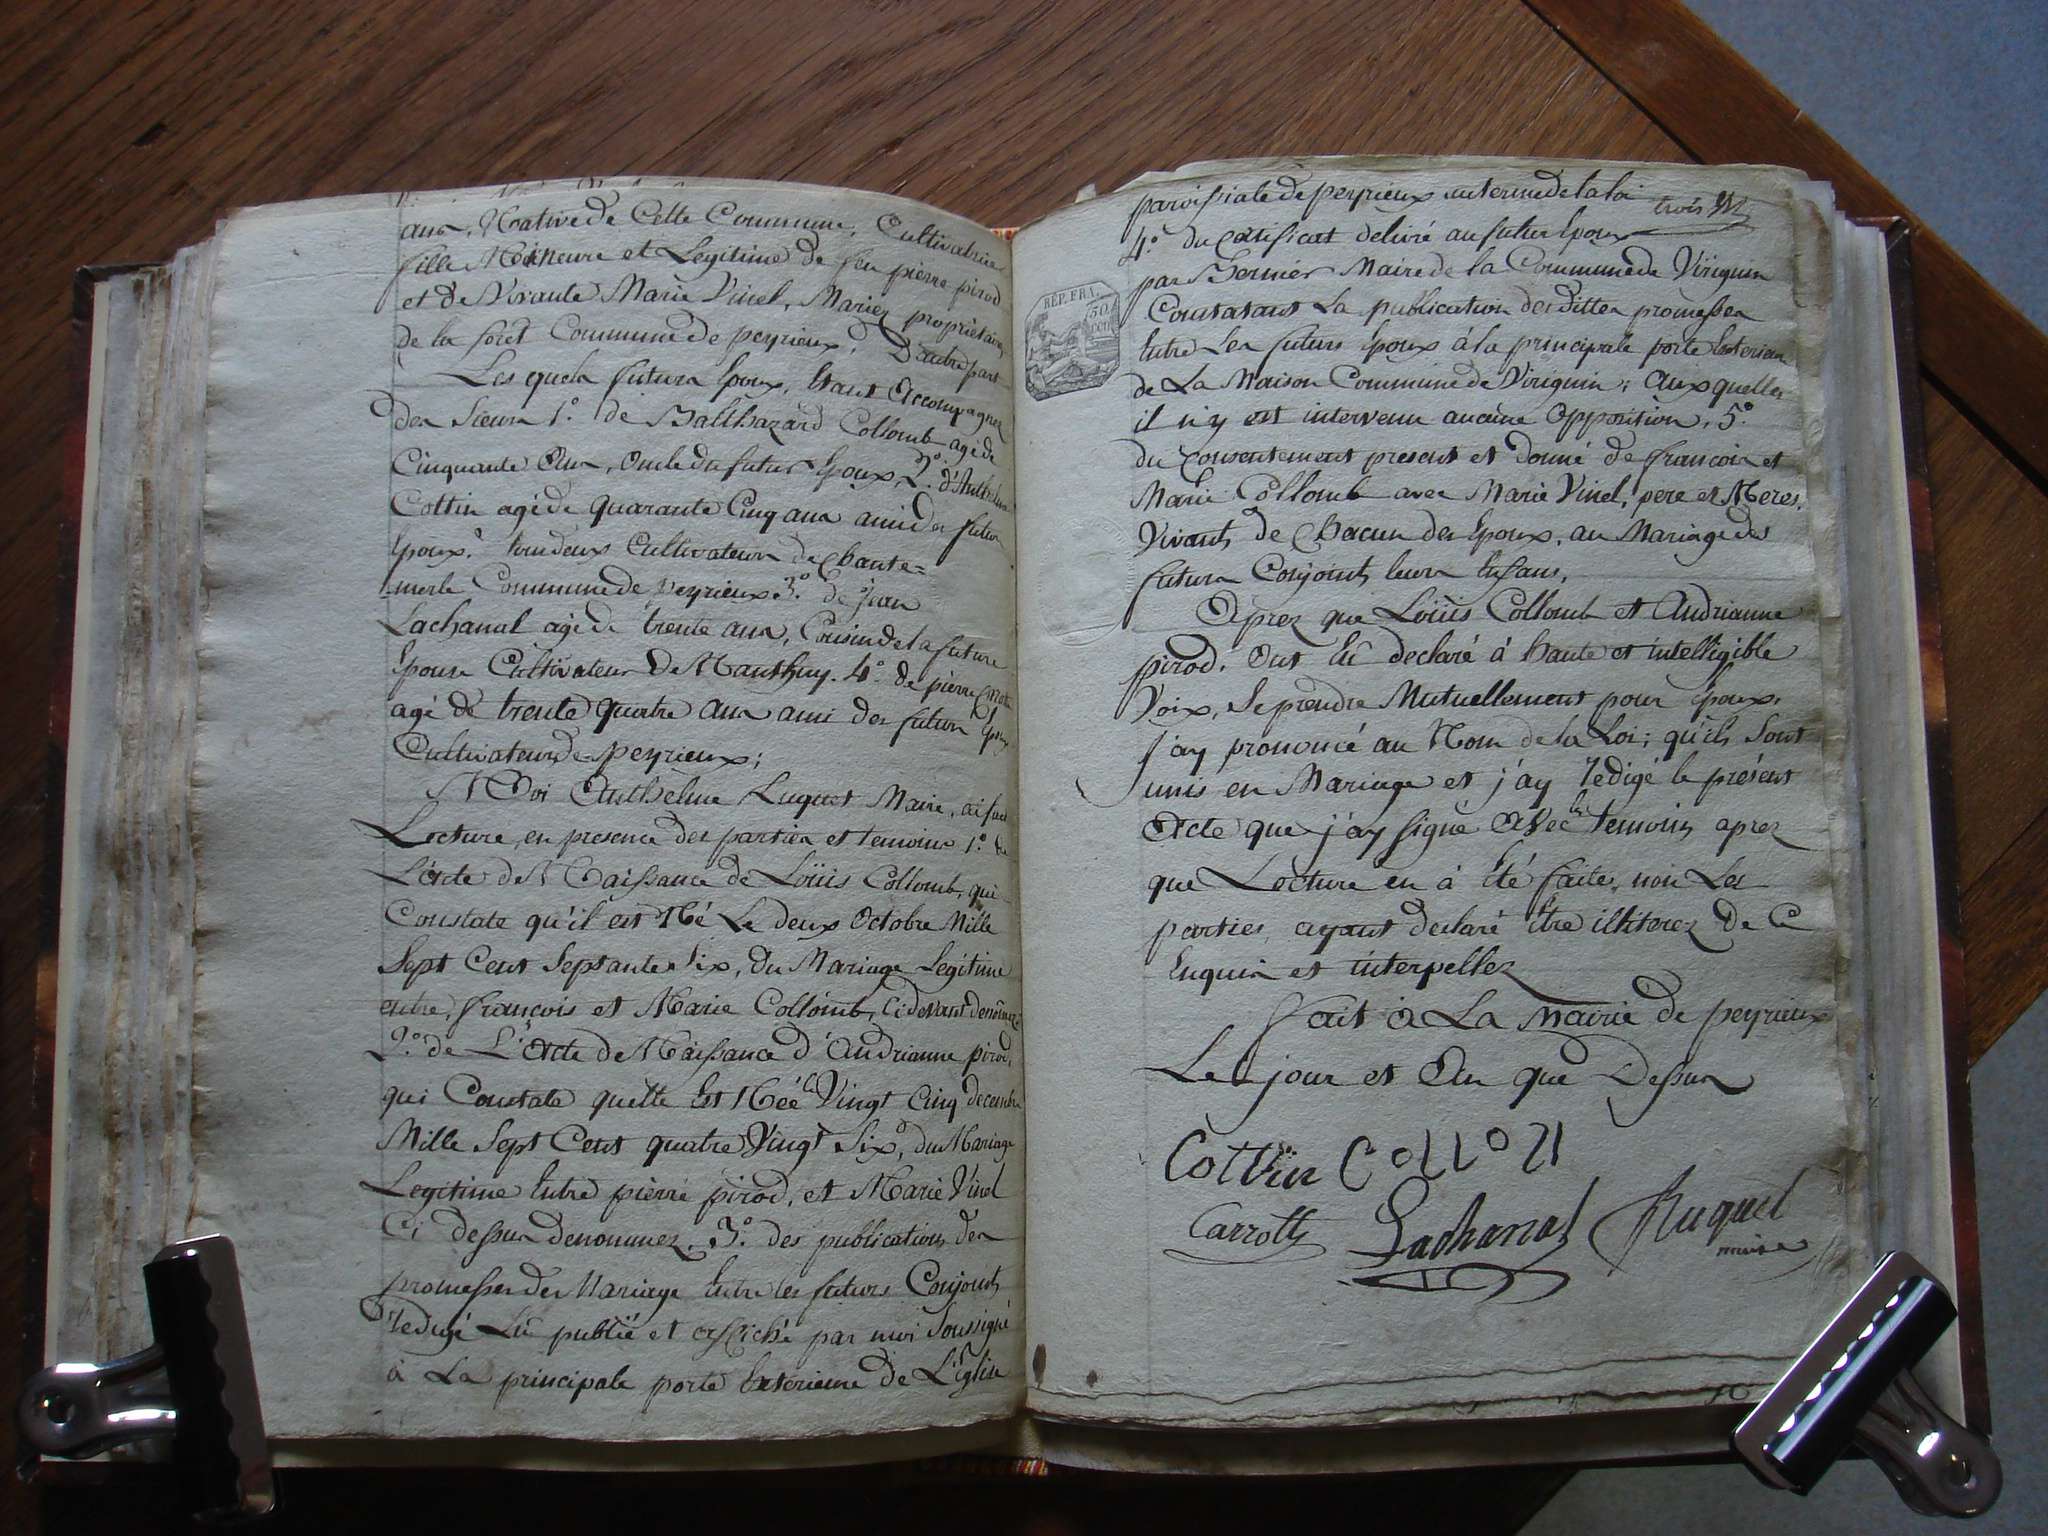 ans, Native de Cette Commune, Cultivatrice
fille Mineure et Legitime de feu pierre pirod
et de Vivante Marie Vinel, Mariez propriétaires
de la foret Commune de peyrieux, D'autre part
Les quels futurs Epoux, Etant Accompagnez
des Sieurs 1.º de Balthazard Collomb agé de
Cinquante Ans, oncle du futur Epoux, 2.º d'Anthelme
Cottin agé de quarante Cinq ans ami des futurs
Epoux. tous deux Cultivateurs de Chante=
merle Commune de peyrieux 3.º de jean
Lachanal agé de trente ans, Cousin de la future
Epouse Cultivateur De 4.º de pierre
agé de trente quatre ans ami des futurs Epoux
Cultivateur de peyrieux;
Moi Anthelme Luquet Maire, ai fait
Lecture, en presence des parties et temoins 1.º de
L'Acte de Naissance de Loüis Collomb, qui
Constate qu'il est Né Le deux Octobre Mille
Sept Cent Septante Six, du Mariage Legitime
entre, françois et Marie Collomb, Ci devant denommez
2.º de L'Acte de Naissance d'Andrianne pirod,
qui Constate quelle Est Née le Vingt Cinq decembre
Mille Sept Cent quatre Vingt Six, du Mariage
Legitime Entre pierre pirod, et Marie Vinel
Ci dessus denommez. 3.º des publications des
promesses de Mariage Entre les futurs Conjoints
redigé Lû publié et affiché par moi Soussigné
à La principale porte Exterieure de L'Eglise
paroissiale de peyrieux au terme de la loi
trois
4.º du Certificat delivré au futur Epoux
par Bernier Maire de la Commune de Virignin
REP. FRA.
50
cen
Constatant La publication des dittes promesses
Entre Les futurs Epoux à la principale porte Exterieure
de La Maison Commune de Virignin; Aux quelles
il n'y est intervenu aucune Opposition, 5.º
du Consentement present et donné de françois et
Marie Collomb avec Marie Vinel, pere et Meres,
Vivants de Chacun des Epoux, au Mariage des
futurs Conjoints leurs Enfans,
Aprez que Loüis Collomb et Andrianne
pirod. Ont Eû declaré à haute et intelligible
Voix, Se prendre Mutuellement pour Epoux,
j'ay prononcé au Nom de la Loi; qu'ils Sont
unis en Mariage et j'ay redigé le présent
Acte que j'ay signé Avec les temoins aprez
que Lecture en à Eté faite, non Les
parties, ayant declaré Etre illiterez de Ce
Enquis et interpellez
fait à La Mairie de peyrieux
Le jour et An que Dessus
Cottin Collon
Carrotte Lachanal Luquet
maire